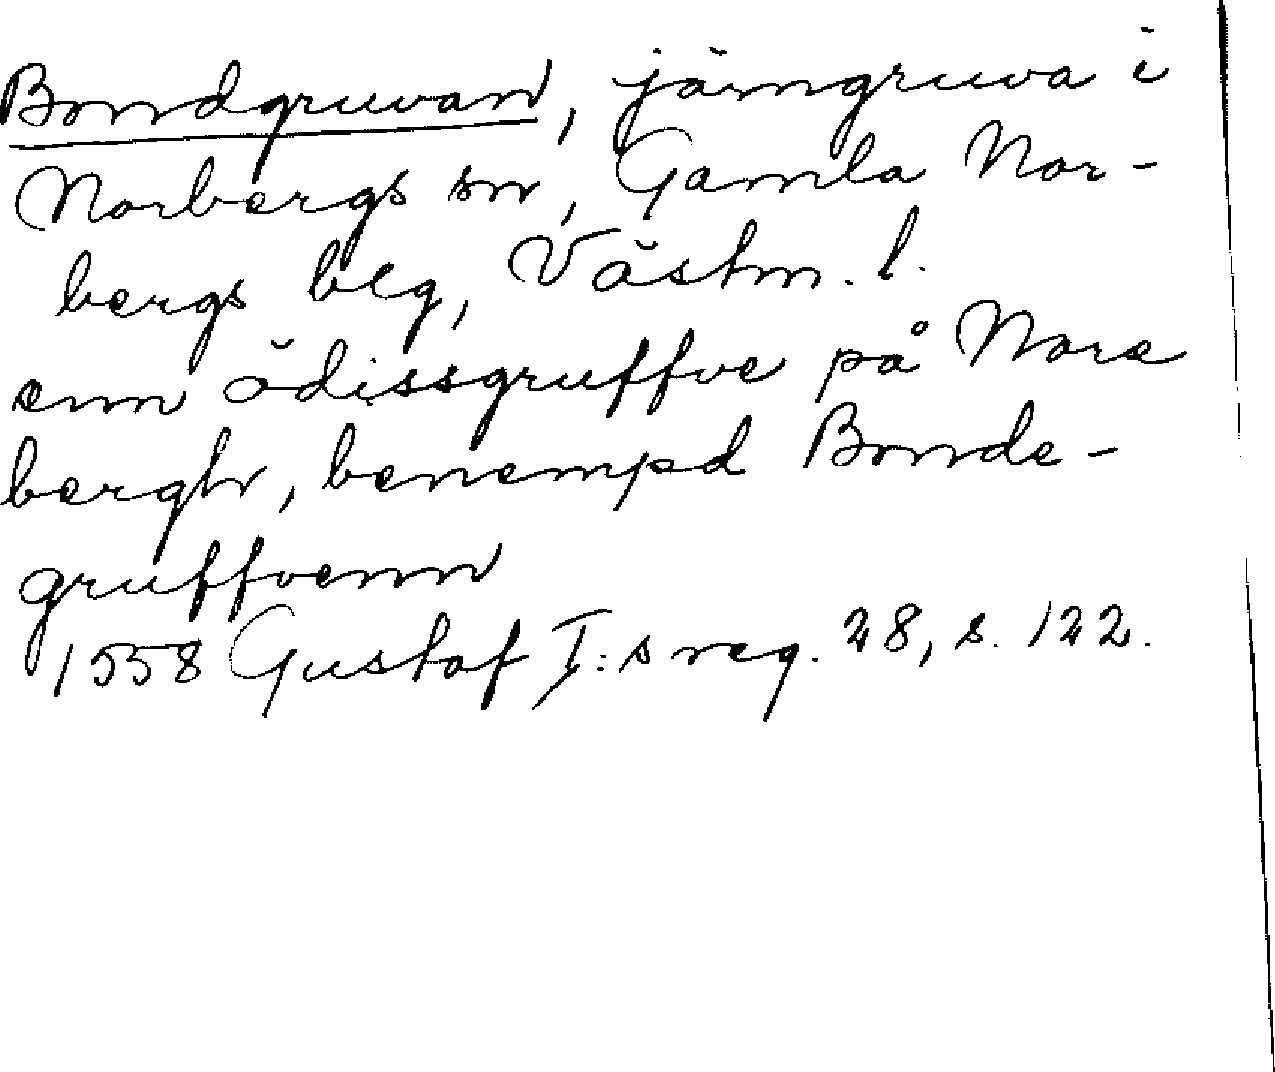 Bondgruvan, järngruva i
Norbergs sn, Gamla Nor-
bergs blg, Västm. l.
enn ödissgruffve på Nore
bergh, benempd Bonde-
gruffvenn
1558 Gustaf I:s reg. 28, s. 122.